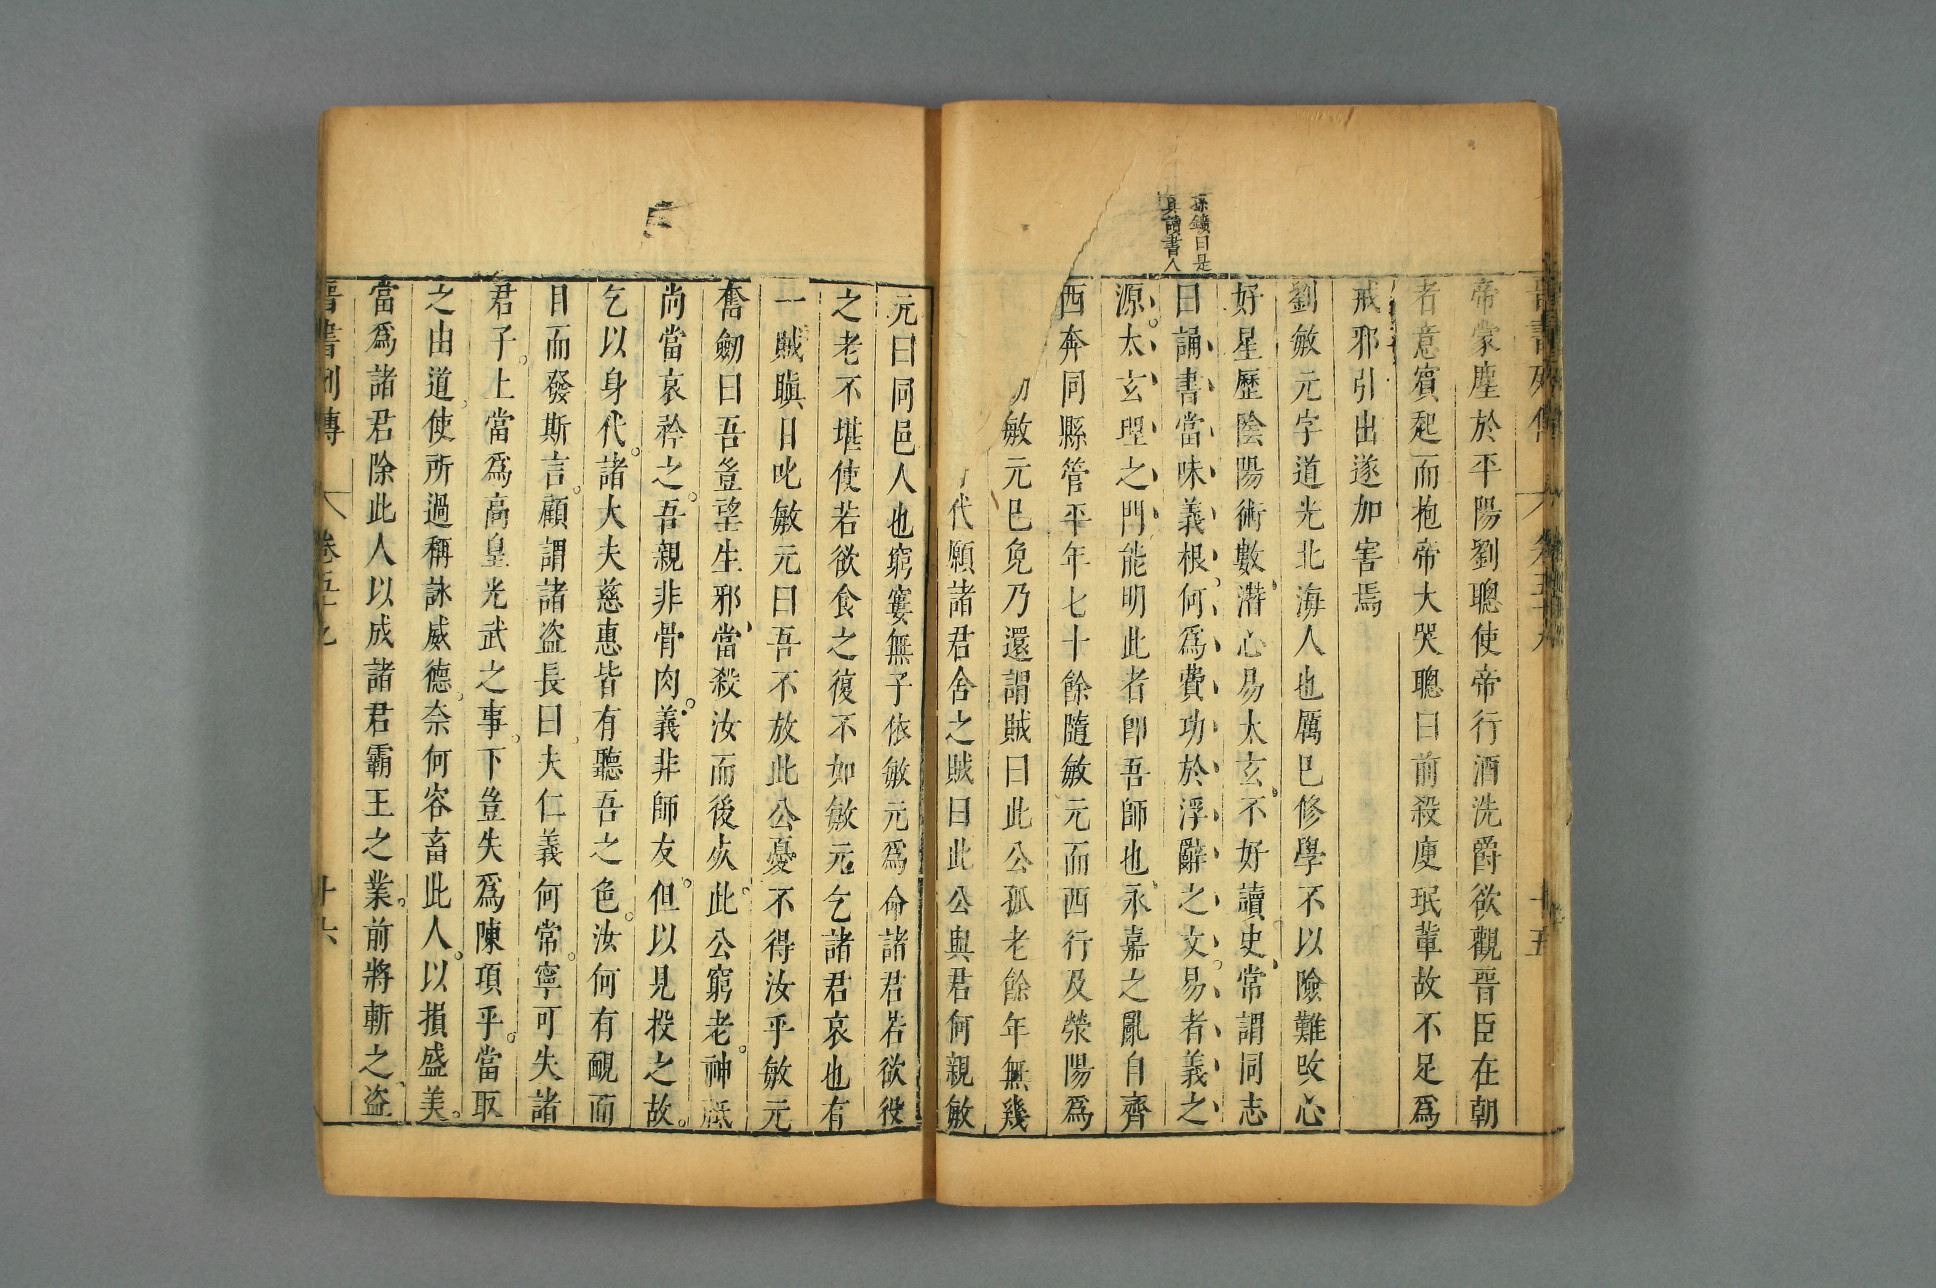 孫鑛曰是
真讀書人
帝蒙塵於平陽劉聰使帝行酒洗爵欲觀晉臣在朝
者意賓起而抱帝大哭聰曰前殺庾珉輩故不足為
戒邪引出遂加害焉
劉敏元字道光北海人也厲已修學不以險難改心
好星歷陰陽術數潛心易太玄不好讀史常謂同志
曰誦書當味義根何為費功於浮辭之文易者義之
源太玄理之門能明此者卽吾師也永嘉之亂自齊
西奔同縣管平年七十餘隨敏元而西行及滎陽為
敏元已免乃還謂賊曰此公孤老餘年無幾
代願諸君舍之賊曰此公與君何親敏
元曰同邑人也窮窶無子依敏元為命諸君若欲役
之老不堪使若欲食之復不如敏元乞諸君哀也有
一賊瞋目叱敏元曰吾不放此公憂不得汝乎敏元
奮劒曰吾豈望生邪當殺汝而後死此公窮老神祗
尚當哀矜之吾親非骨肉義非師友但以見投之故
乞以身代諸大夫慈惠皆有聽吾之色汝何有靦而
目而發斯言顧謂諸盜長曰夫仁義何常寧可失諸
君子上當為高皇光武之事下豈失為陳項乎當取
之由道使所過稱詠威德奈何容畜此人以損盛美
當為諸君除此人以成諸君霸王之業前將斬之盜
晉書列傳 卷五十九 十六